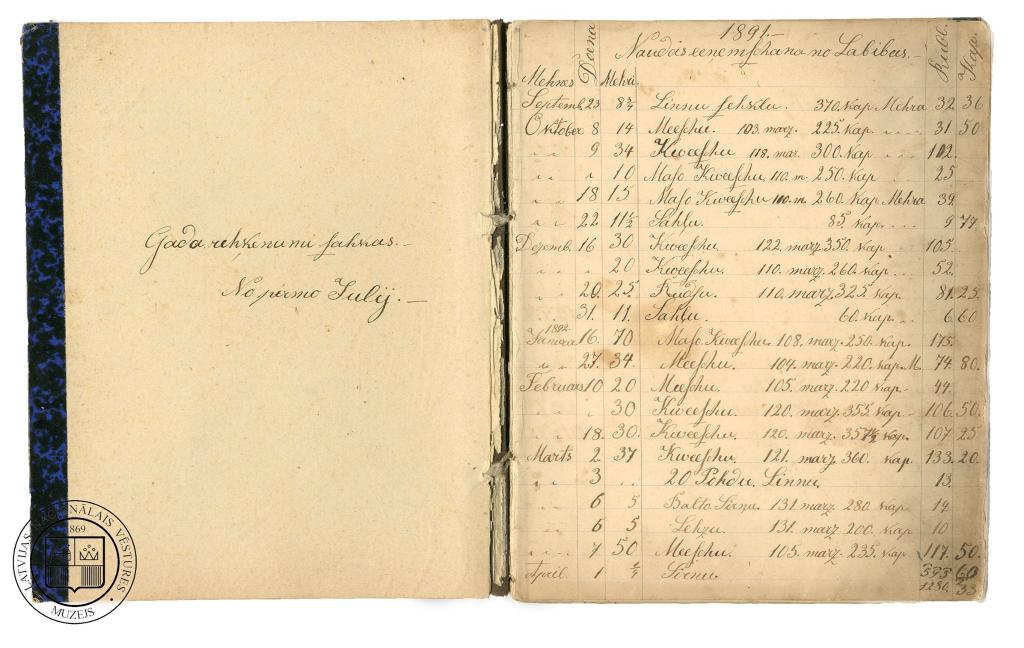 Gada rehķenumi sahkas. —
No pirmo Julij. —
1891. —
Naudas eeņemshana no Labibas. —
Mehnes Dana Mehri Rubl. Kap.
Septemb. 23 8¾ Linnu sehklu. 370. Kap Mehra 32 36
Oktober 8 14 Meeschu. 103. marz. 225. Kap. 31. 50
" " 9 34 Kweeschu 118. mar. 300. Kap 102.
" " " 10 Maso Kweeschu 110. m. 250. Kap 25
18 15 Maso Kweeschu 110. m. 260. Kap Mehra 39.
" " 22 11½ Sahļu. 85. Kap. 9 77
Dezemb. 16 30 Kweeschu. 122. marz. 350. Kap 105.
" " " 20 Kweeschu. 110. marz. 260. Kap. 52.
" " 20. 25. Rudsu. 110. marz. 325. Kap. 81. 25.
" " 31. 11. Sahļu. 60. Kap. 6 60
1892.
16. 70 Maso Kweeschu. 108. marz. 250. Kap. 175.
" " 27. 34. Meeschu. 104. marz. 220. Kap. M. 74. 80.
Februar 10 20 Meeschu. 105. marz. 220 Kap. 44.
" " " 30 Kweeschu. 120. marz. 355. Kap. 106. 50.
" " 18. 30. Kweeschu. 120. marz. 357½ Kap. 107. 25
Marts 2. 37 Kweeschu. 121. marz. 360. Kap. 133. 20.
" " 3 " " 20 Pohdu. Linnu. 13.
" " 6 5 Balto Sirnu. 131. marz. 280. Kap 14.
" " 6 5 Lehzu. 131. marz. 200. Kap 10
" " 7. 50 Meeschu. 105. marz. 235. Kap 117. 50.
April. 1 Sirnu. 393 60
1280. 33
LATVIJAS NACIONĀLAIS VĒSTURES MUZEJS
1869